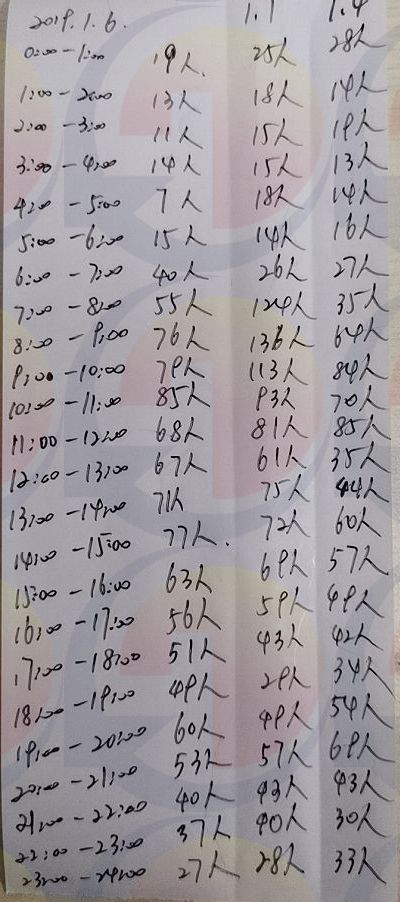 2019.1.6. 1.1 1.4
0:00-1:00 19人. 25人 28人
1:00-2:00 13人 18人 14人
2:00-3:00 11人 15人 19人
3:00-4:00 14人 15人 13人
4:00-5:00 7人 18人 14人
5:00-6:00 15人 14人 16人
6:00-7:00 40人 26人 27人
7:00-8:00 55人 124人 35人
8:00-9:00 76人 136人 64人
9:00-10:00 79人 113人 84人
10:00-11:00 85人 93人 70人
11:00-12:00 68人 81人 85人
12:00-13:00 67人 61人 35人
13:00-14:00 71人 75人 44人
14:00-15:00 77人. 72人 60人
15:00-16:00 63人 69人 57人
16:00-17:00 56人 59人 49人
17:00-18:00 51人 43人 42人
18:00-19:00 49人 29人 34人
19:00-20:00 60人 49人 54人
20:00-21:00 53人 57人 69人
21:00-22:00 40人 43人 43人
22:00-23:00 37人 40人 30人
23:00-24:00 27人 28人 33人